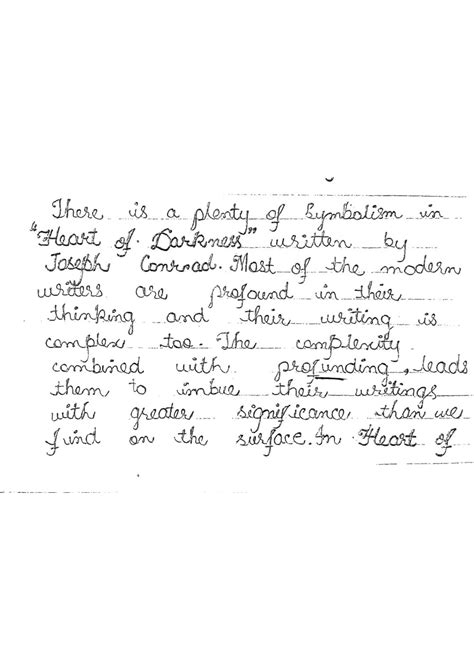 There is a plenty of Symbolism in
"Heart of Darkness" written by
Joseph Conrad. Most of the modern
writers are profound in their
thinking and their writing is
complex too. The complexity
combined with profunding, leads
them to imbue their writings
with greater significance than we
find on the surface. In Heart of